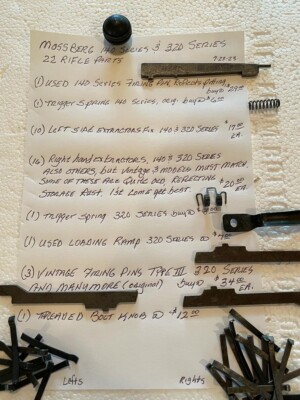 MOSSBERG 140 SERIES & 320 SERIES
22 RIFLE PARTS
(1) USED 140 SERIES FIRING PIN
(1) Trigger SPRING 140 SERIES, ORG. buy @ $6.00
(10) LEFT SIDE EXTRACTORS FOR 140 & 320 SERIES $19.00
EA.
(16) Right hand EXTRACTORS, 140 & 320 SERIES
ALSO OTHERS, but vintage & MODELS MUST MATCH,
SOME OF THESE ARE QUITE OLD REFLECTING
STORAGE RUST. 1st come get best. $20.00
EA.
(1) Trigger Spring 320 SERIES buy @
(1) USED LOADING RAMP 320 SERIES @
(3) VINTAGE FIRING PINS TYPE III 320 SERIES
AND MANY MORE (original) buy @ $34.00
EA.
(1) THREADED BOLT KNOB @ $12.00
Lefts
Rights